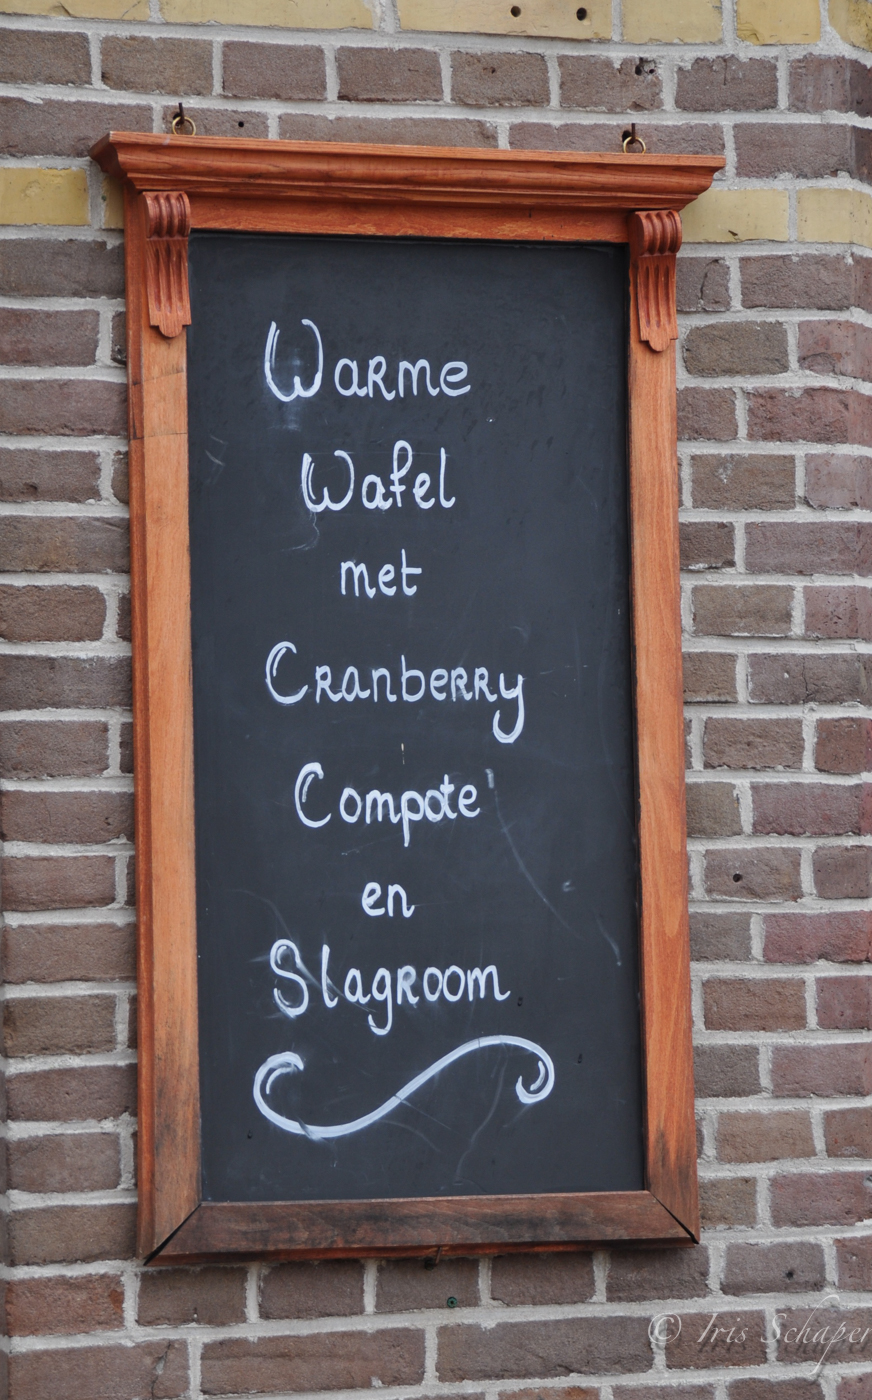 Warme
Wafel
met
Cranberry
Compote
en
Slagroom
© Iris Schaper